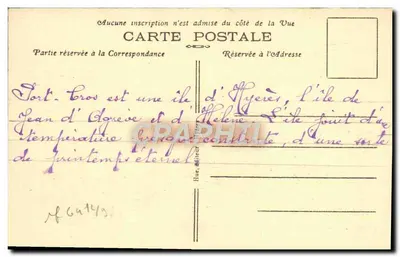 Aucune inscription n'est admise du côté de la Vue
CARTE POSTALE
Partie réservée à la Correspondance
Réservée à l'Adresse
Port-Cros est une île d'Hyères, l'île de
Jean d'Agrève et d'Hélène. L'île jouit d'une
température presque constante, d'une sorte
de printemps éternel